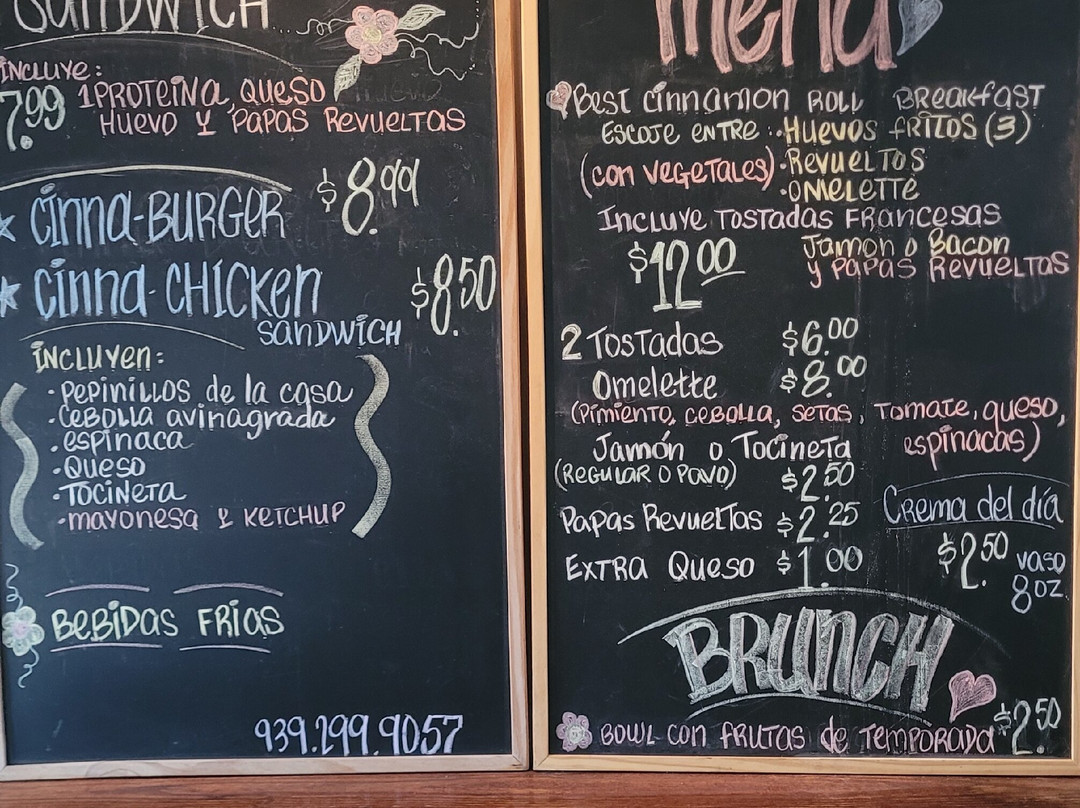 SANDWICH
INCLUYE:
7.99 1 PROTEINA, QUESO
HUEVO Y PAPAS REVUELTAS
CINNA-BURGER $8.99
CINNA-CHICKEN $8.50
SANDWICH
INCLUYEN:
• PEPINILLOS de la casa
• Cebolla avinagrada
• espinaca
• QUESO
• TOCINETA
• mayonesa & KETCHUP
BEBIDAS FRIAS
939.299.9057
menu
Best cinnamon ROLL BREAKfAST
ESCOJE ENTRE • HUEVOS fRITOS (3)
(con VEGETALES) • REVUELTOS
• OMELETTE
INCLUYE TOSTADAS FRANCESAS
$12.00 Jamon o Bacon
y PAPAS REVUELTAS
2 TOSTADAS $6.00
Omelette $8.00
(Pimiento, cebolla, setas, Tomate, queso,
espinacas)
Jamón o Tocineta
(REGULAR O PAVO) $2.50
Papas Revueltas $2.25
EXTRA QUESO $1.00
Crema del día
$2.50 vaso
8oz
BRUNCH
BOWL CON FRUTAS de TEMPORADA $2.50